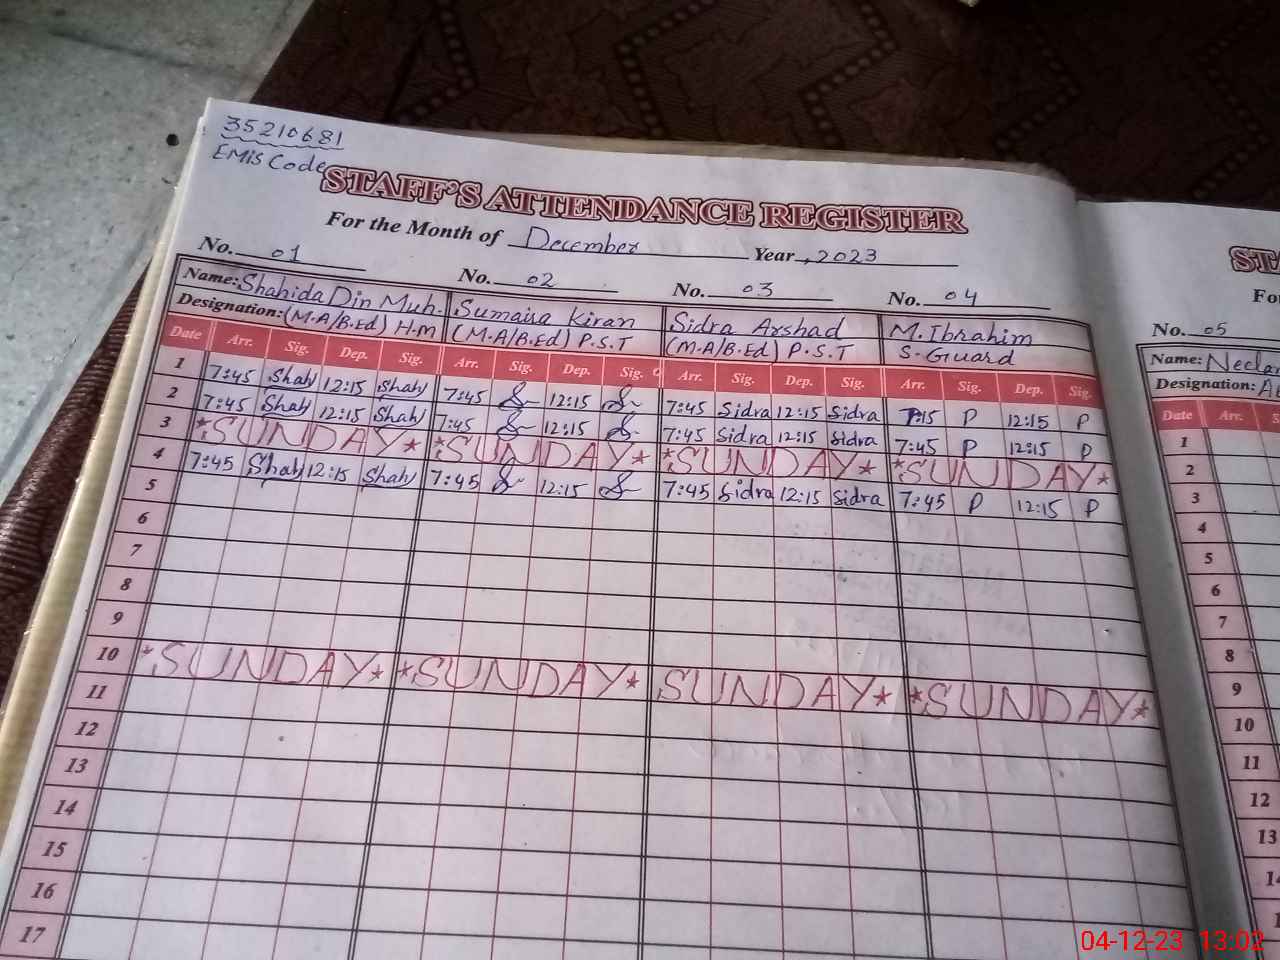 35210681
EMIS Code
STAFF'S ATTENDANCE REGISTER
For the Month of December Year 2023
No. 01 No. 02 No. 03 No. 04
Name: Shahida Din Muh. Sumaisa Kiran Sidra Arshad M. Ibrahim
Designation: (M.A/B.Ed) H.m (M.A/B.Ed) P.S.T (M.A/B.Ed) P.S.T S. Guard
Date Arr. Sig. Dep. Sig. Arr. Sig. Dep. Sig. Arr. Sig. Dep. Sig. Arr. Sig. Dep. Sig.
1 7:45 Shah 12:15 Shah 7:45 12:15 7:45 Sidra 12:15 Sidra P 12:15 P
2 7:45 Shah 12:15 Shah 7:45 12:15 7:45 Sidra 12:15 Sidra 7:45 P 12:15 P
3 *SUNDAY* *SUNDAY* *SUNDAY* *SUNDAY*
4 7:45 Shah 12:15 Shah 7:45 12:15 7:45 Sidra 12:15 Sidra 7:45 P 12:15 P
5
6
7
8
9
10 *SUNDAY* *SUNDAY* SUNDAY* *SUNDAY*
11
12
13
14
15
16
17
No. 05
Name:
Designation:
Date Arr.
1
2
3
4
5
6
7
8
9
10
11
12
13
04-12-23 13:02